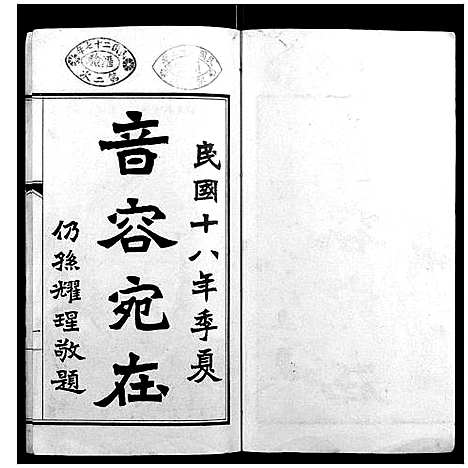 民國十八年季夏
音容宛在
仍孫耀瑆敬題